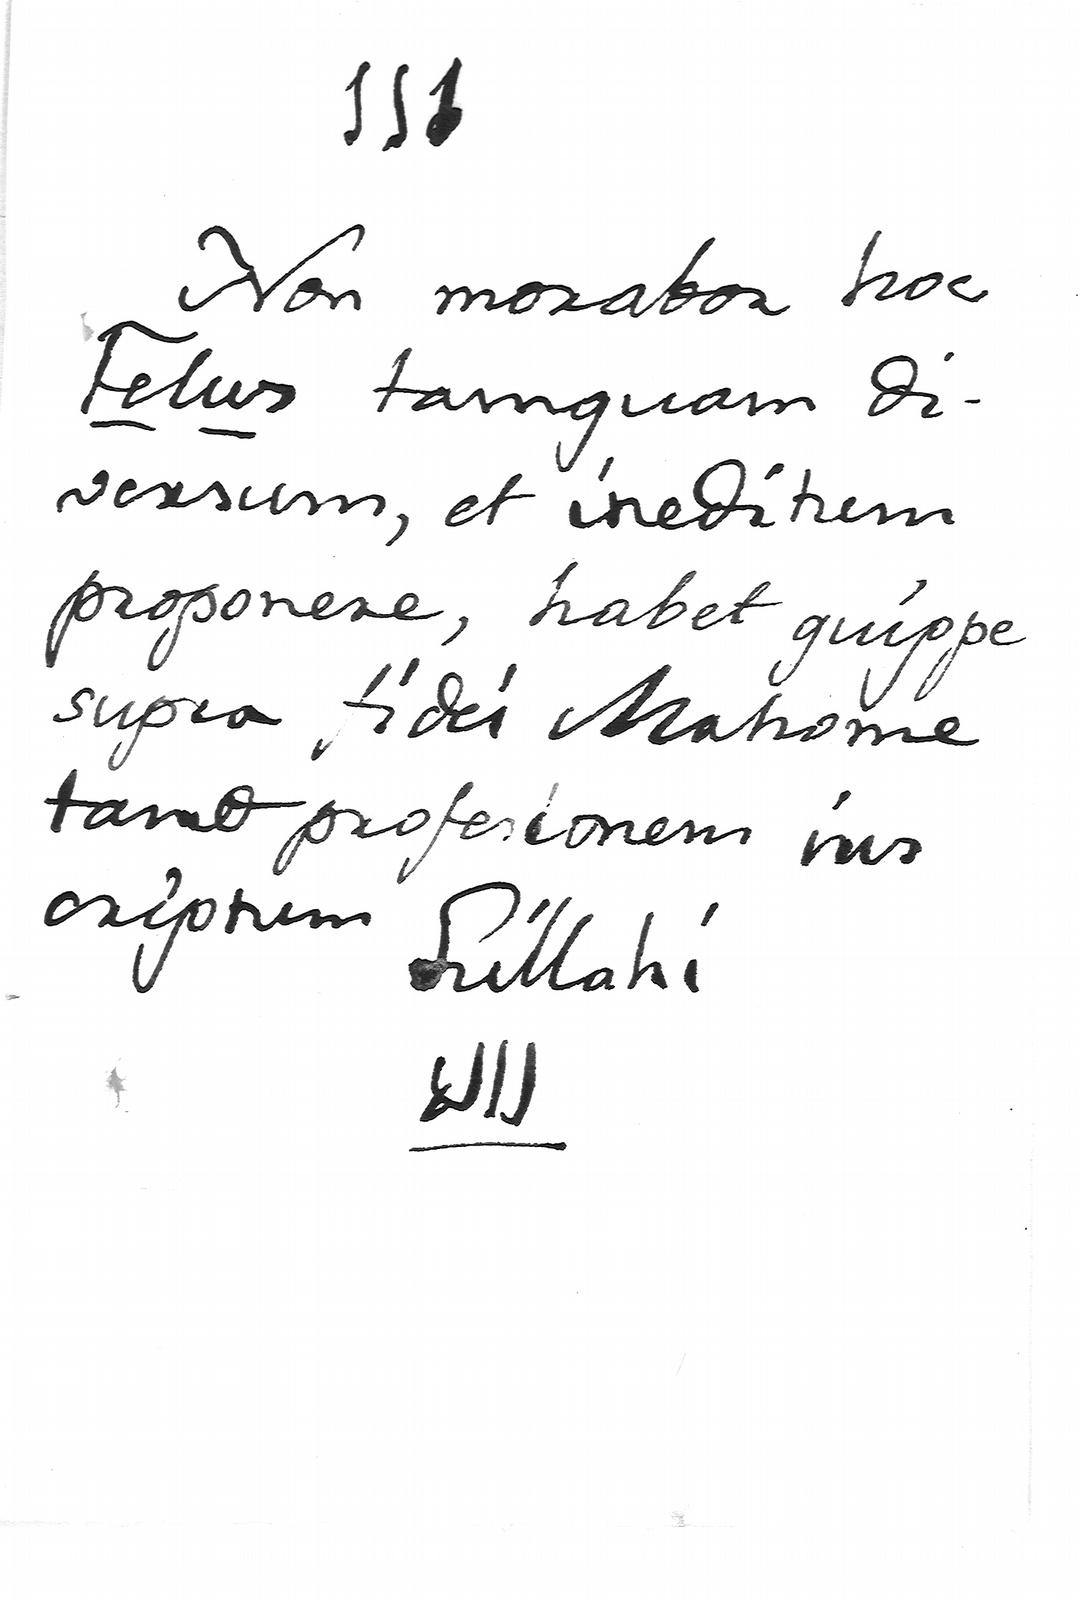 Non morabor hoc
Felus tamquam di-
versum, et ineditum
proponere, habet quippe
supra fidei Mahome
tanæ profesionem ins
criptum
Lillahi